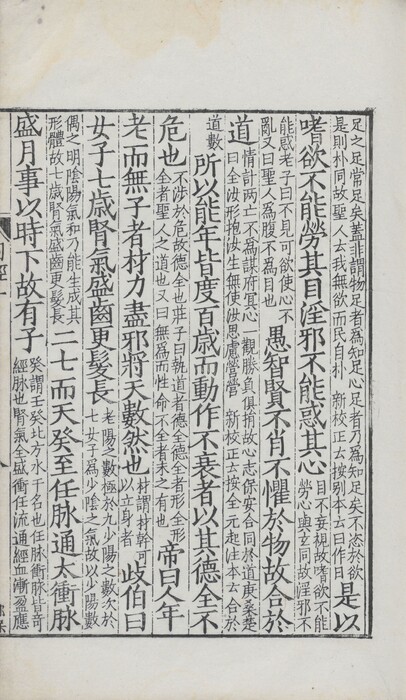 足之足常足矣蓋非謂物足者為知足心足者乃為知足矣不恣於欲
是則朴同故聖人云我無欲而民自朴　新校正云按别本云曰作日
是以
嗜欲不能勞其目淫邪不能惑其心
目不妄視故嗜欲不能
勞心與玄同故淫邪不
能惑老子曰不見可欲使心不
亂又曰聖人為腹不為目也
愚智賢不肖不懼於物故合於
道
情計兩亡不為謀府冥心一觀勝負俱捐故心志保安合同於道庚桑楚
曰全汝形抱汝生無使汝思慮營營　新校正云按全元起注本云合於
道數
所以能年皆度百歲而動作不衰者以其德全不
危也
不涉於危故德全也莊子曰執道者德全德全者形全形
全者聖人之道也又曰無為而性命不全者未之有也
帝曰人年
老而無子者材力盡邪將天數然也
材謂材幹可
以立身者
歧伯曰
女子七歲腎氣盛齒更髮長
老陽之數極於九少陽之數次於
七女子為少陰之氣故以少陽數
偶之明陰陽氣和乃能生成其
形體故七歲腎氣盛齒更髮長
二七而天癸至任脉通太衝脉
盛月事以時下故有子
癸謂壬癸北方水干名也任脉衝脉皆奇
經脉也腎氣全盛衝任流通經血漸盈應